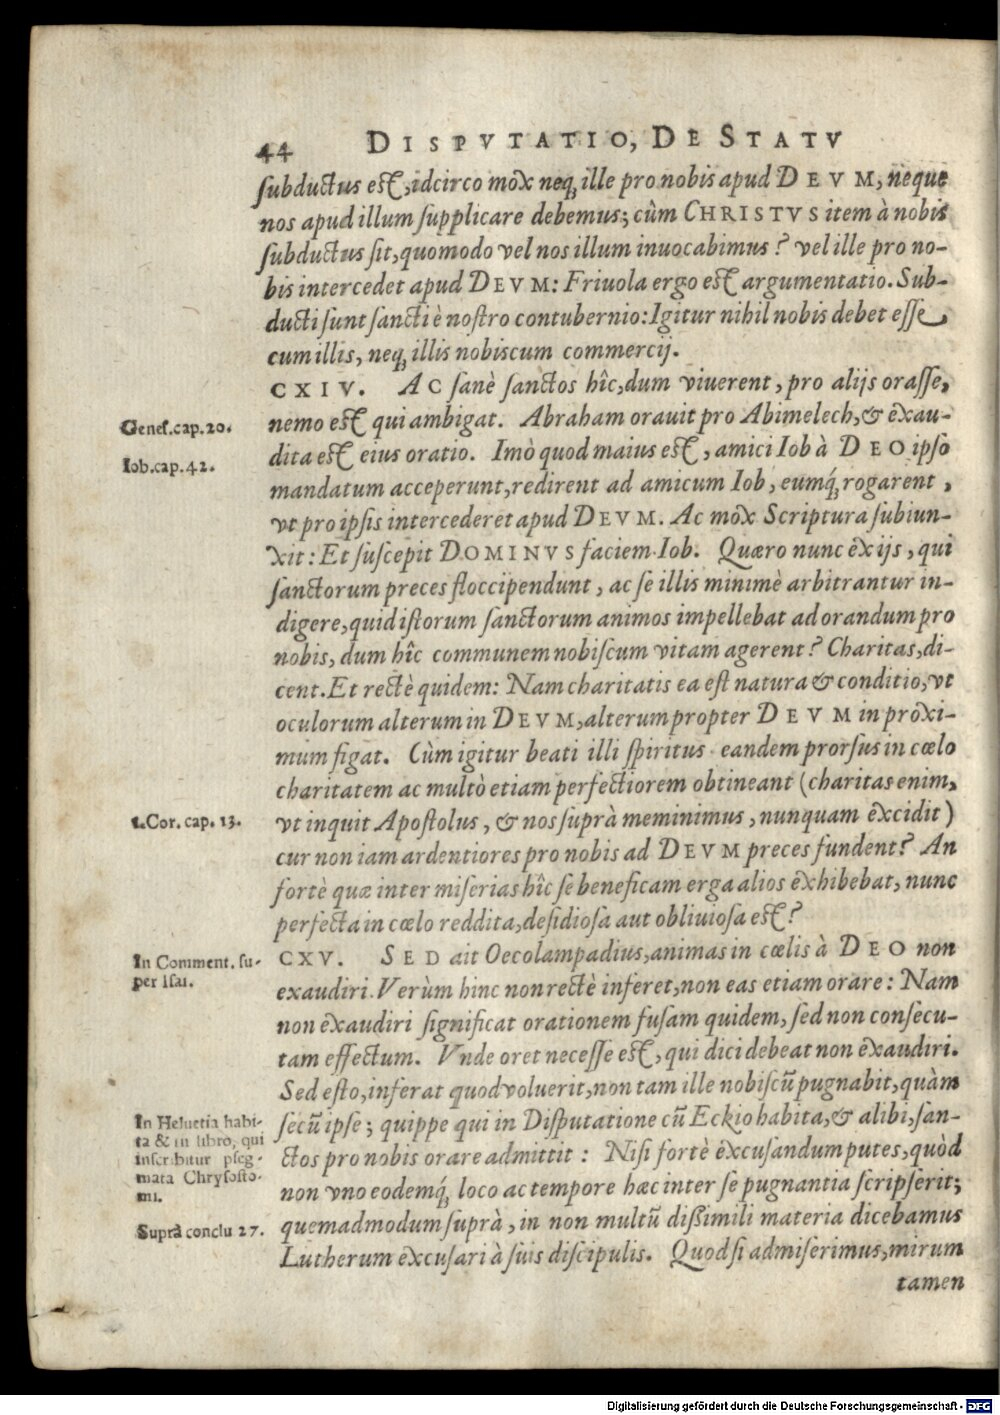 44 DISPVTATIO, DE STATV
ſubductus eſt, idcirco mox neq; ille pro nobis apud DEVM, neque
nos apud illum ſupplicare debemus; cùm CHRISTVS item à nobis
ſubductus ſit, quomodo vel nos illum inuocabimus? vel ille pro no-
bis intercedet apud DEVM: Friuola ergo eſt argumentatio. Sub-
ducti ſunt ſancti è noſtro contubernio: Igitur nihil nobis debet eſſe
cum illis, neq; illis nobiscum commercij.
CXIV. AC ſanè ſanctos hîc, dum viuerent, pro alijs oraſſe,
Geneſ. cap. 20. nemo eſt qui ambigat. Abraham orauit pro Abimelech, & exau-
Iob. cap. 42. dita eſt eius oratio. Imò quod maius eſt, amici Iob à DEO ipſo
mandatum acceperunt, redirent ad amicum Iob, eumq́; rogarent,
vt pro ipſis intercederet apud DEVM. Ac mox Scriptura ſubiun-
xit: Et ſuſcepit DOMINVS faciem Iob. Quæro nunc ex ijs, qui
ſanctorum preces floccipendunt, ac ſe illis minimè arbitrantur in-
digere, quid iſtorum ſanctorum animos impellebat ad orandum pro
nobis, dum hîc communem nobiſcum vitam agerent? Charitas, di-
cent. Et rectè quidem: Nam charitatis ea eſt natura & conditio, vt
oculorum alterum in DEVM, alterum propter DEVM in proxi-
mum figat. Cùm igitur beati illi ſpiritus eandem prorſus in cœlo
charitatem ac multò etiam perfectiorem obtineant (charitas enim,
1. Cor. cap. 13. vt inquit Apoſtolus, & nos ſuprà meminimus, nunquam excidit)
cur non iam ardentiores pro nobis ad DEVM preces fundent? An
fortè quæ inter miſerias hîc ſe beneficam erga alios exhibebat, nunc
perfecta in cœlo reddita, deſidioſa aut obliuioſa eſt?
In Comment. ſu- CXV. SED ait Oecolampadius, animas in cœlis à DEO non
per Iſai. exaudiri. Verùm hinc non rectè inferet, non eas etiam orare: Nam
non exaudiri ſignificat orationem fuſam quidem, ſed non conſecu-
tam effectum. Vnde oret neceſſe eſt, qui dici debeat non exaudiri.
Sed eſto, inferat quod voluerit, non tam ille nobiſcū pugnabit, quàm
In Heluetia habi- ſecū ipſe; quippe qui in Diſputatione cū Eckio habita, & alibi, ſan-
ta & in libro, qui
inſcribitur pſeg- ctos pro nobis orare admittit: Niſi fortè excuſandum putes, quòd
mata Chryſoſto-
mi. non vno eodemq́; loco ac tempore hæc inter ſe pugnantia ſcripſerit;
Suprà conclu 27. quemadmodum ſuprà, in non multū diſſimili materia dicebamus
Lutherum excuſari à ſuis diſcipulis. Quod ſi admiſerimus, mirum
tamen
Digitalisierung gefördert durch die Deutsche Forschungsgemeinschaft - DFG